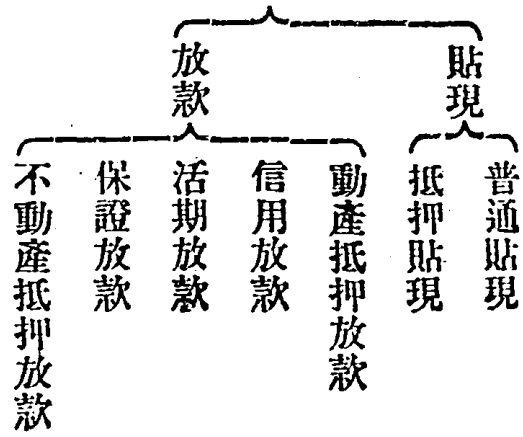 貼現
普通貼現
抵押貼現
放款
動產抵押放款
信用放款
活期放款
保證放款
不動產抵押放款